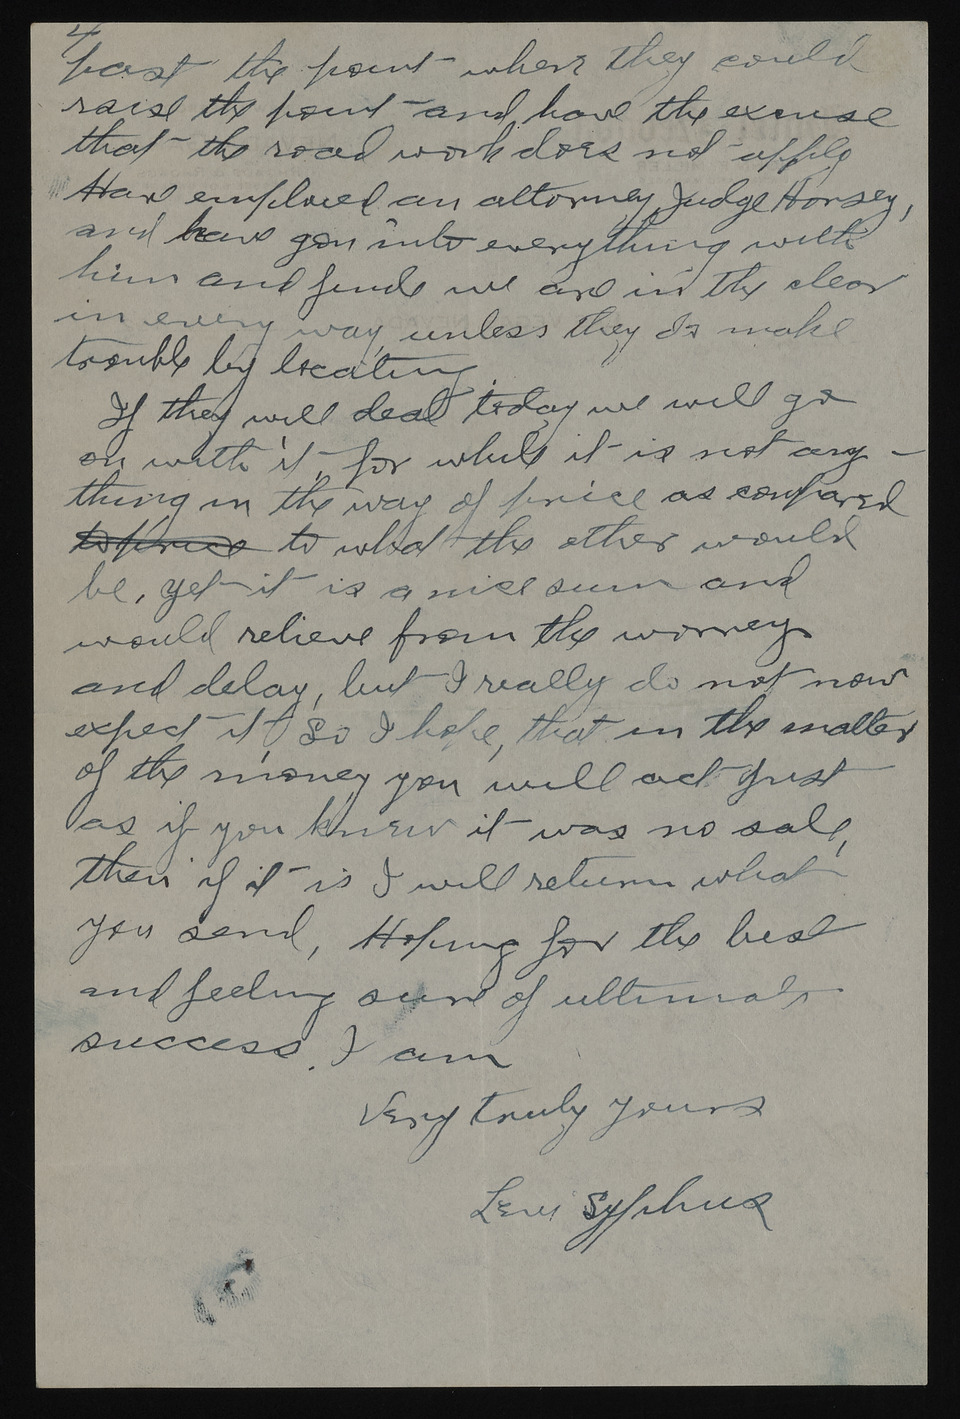 4
past the point where they could
raise the point and have the excuse
that the road work does not apply
Have employed an attorney, Judge Horsey,
and have gon into everything with
him and finds we are in the clear
in every way, unless they do make
trouble by locating.
If they will deal today we will go
on with it, for while it is not any-
thing in the way of price as compared
to price to what the other would
be, yet it is a nice sum and
would relieve from the worrey
and delay, but I really do not now
expect it So I hope, that in the matter
of the money you will act just
as if you knew it was no sale,
then if it is I will return what
you send, Hoping for the best
and feeling sure of ultimate
success. I am
Very truly yours
Levi Syphus